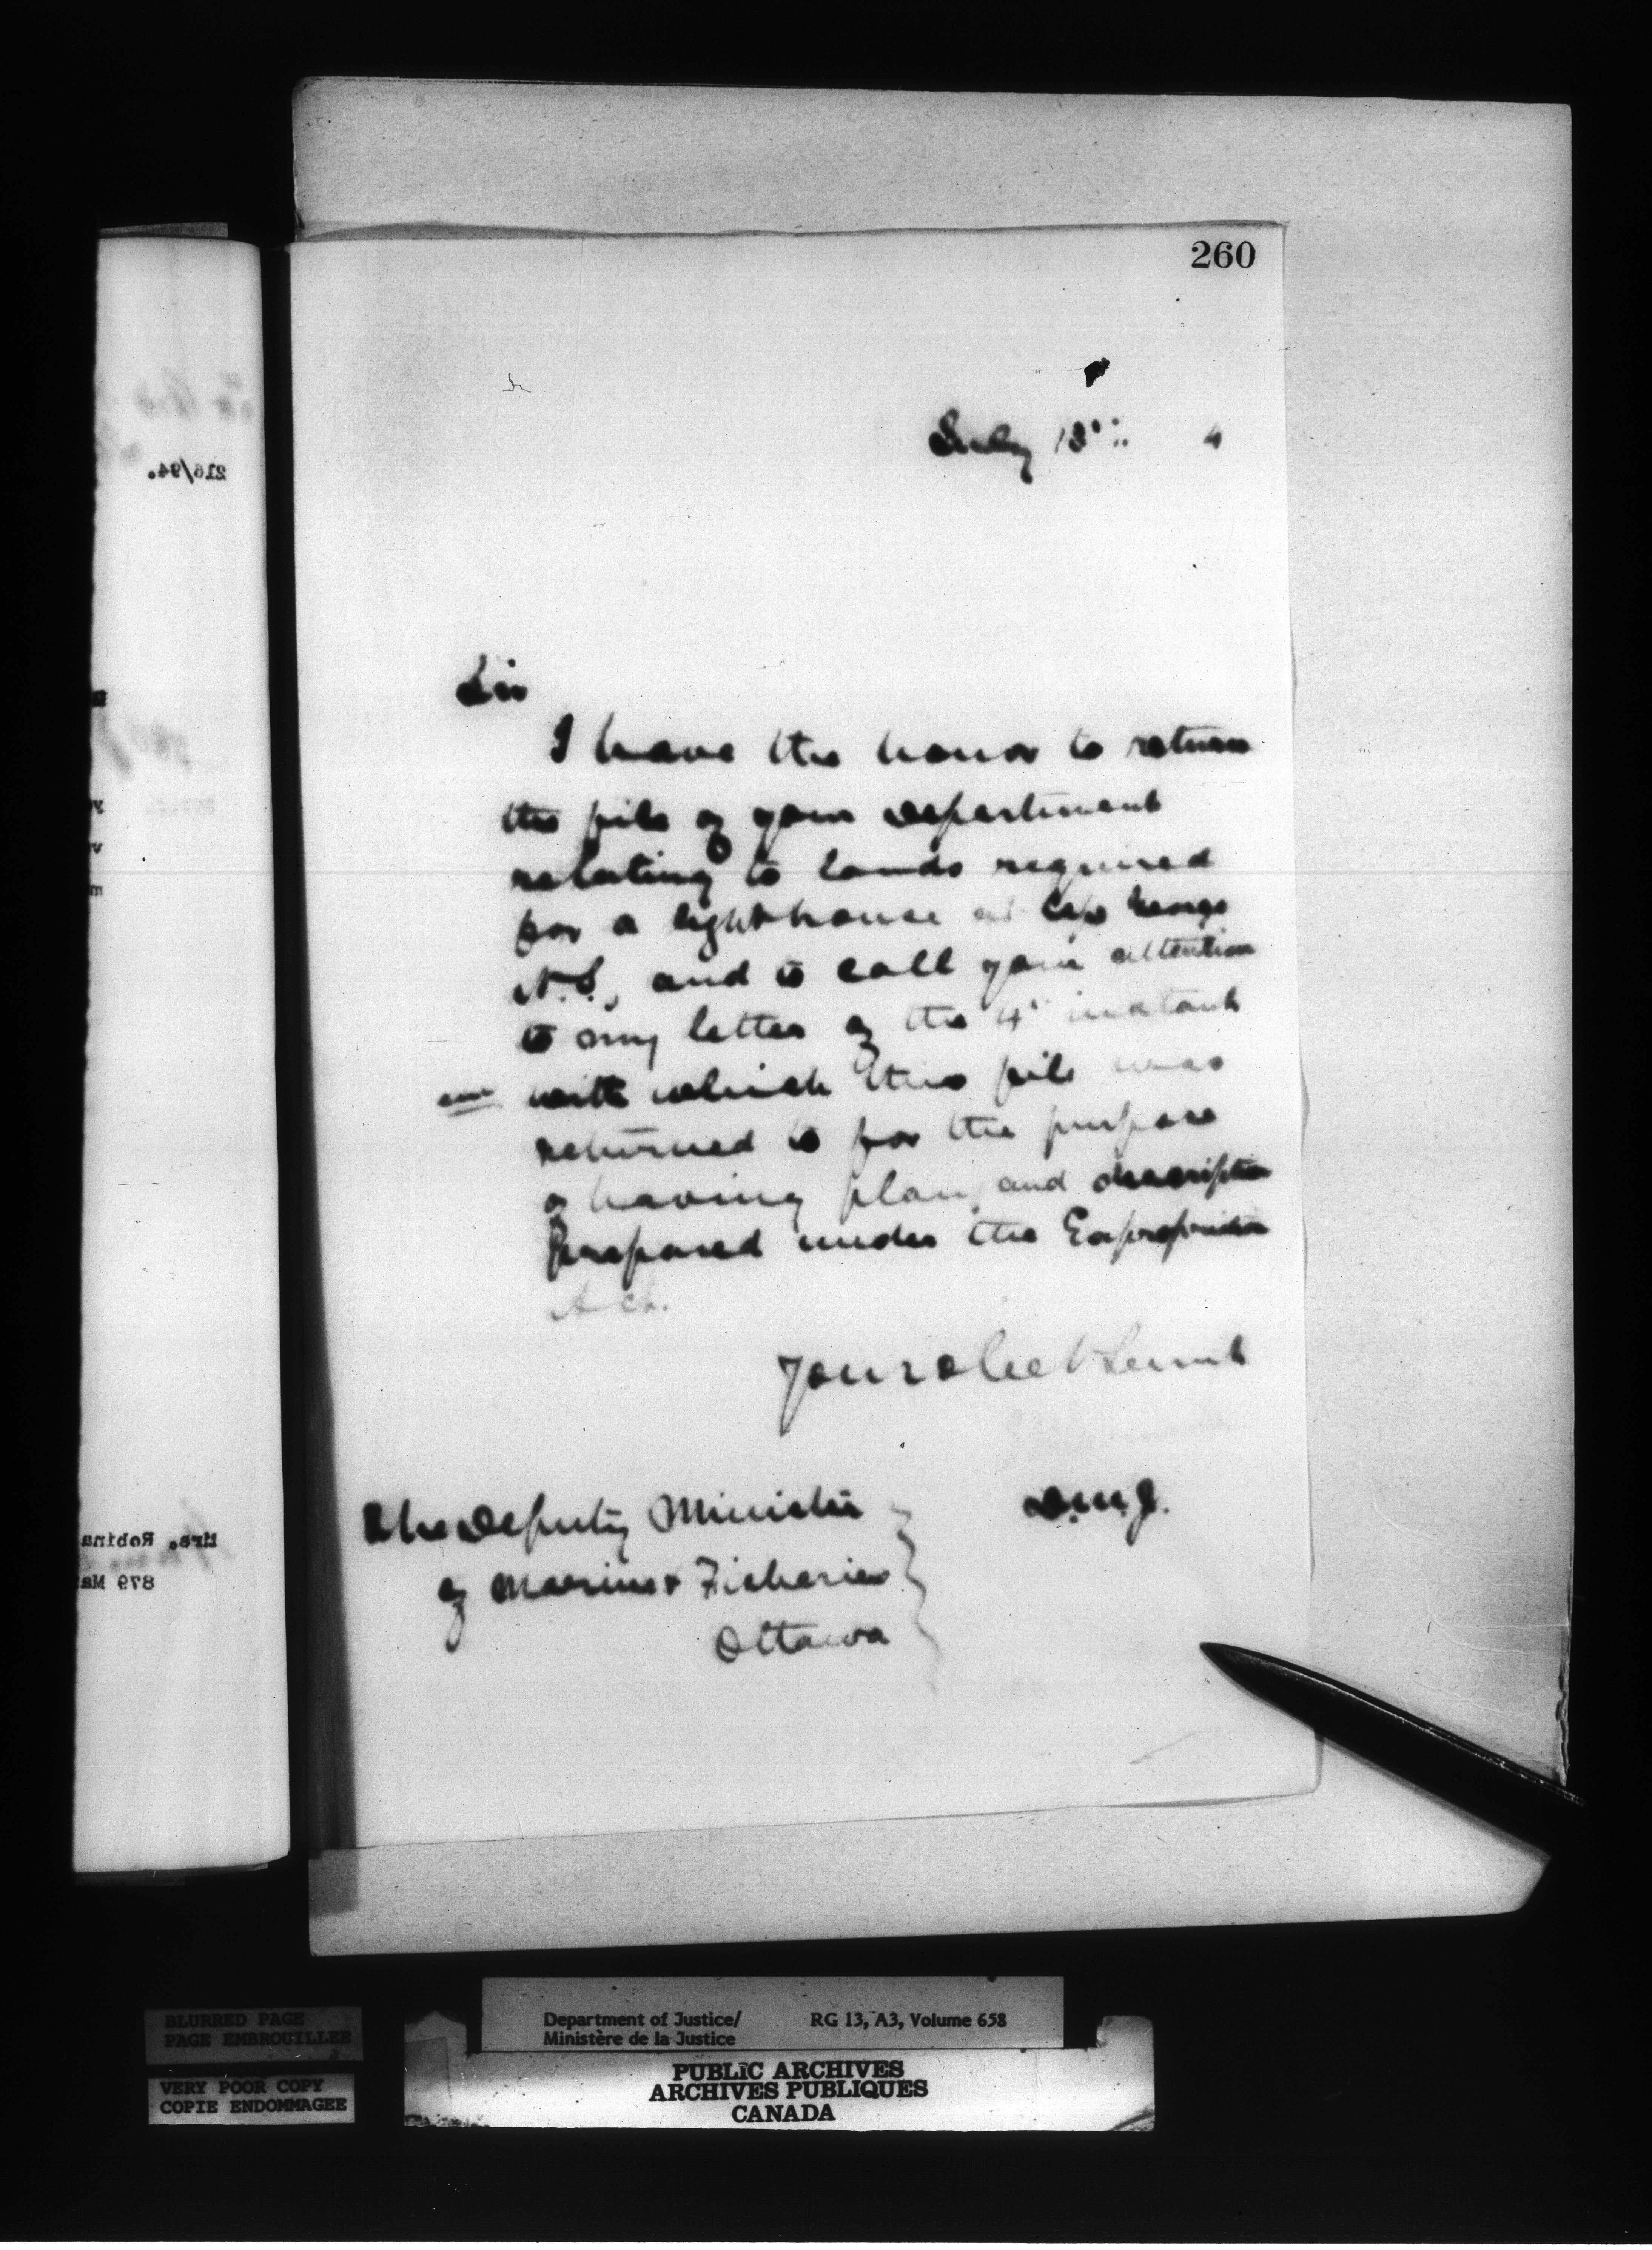 260
July 13th 4
Sir
I have the honor to return
the file of your department
relating to lands required
for a lighthouse at Cape George
N.S., and to call your attention
to my letter of the 4" instant
with which this file was
returned to for the purpose
of having plan, and description
prepared under the Expropriation
Act.
Your obedt Servt
The Deputy Minister
of Marine & Fisheries
Ottawa
D.M.J.
216/94.
Mrs. Robina
879 Ma
BLURRED PAGE
PAGE EMBROUILLEE
VERY POOR COPY
COPIE ENDOMMAGEE
Department of Justice/ RG 13, A3, Volume 658
Ministère de la Justice
PUBLIC ARCHIVES
ARCHIVES PUBLIQUES
CANADA